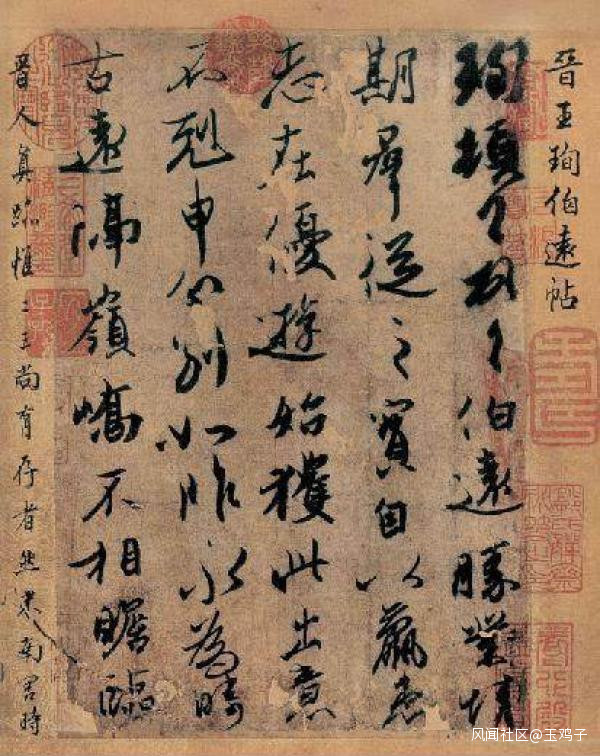 晉王珣伯遠帖
珣頓首頓首伯遠勝業情
期羣從之寶自以羸患
志在優遊始獲此出意
不剋申分別如昨永為疇
古遠隔嶺嶠不相瞻臨
晉人真跡惟二王尚有存者然米南宮時
风闻社区@玉鸡子